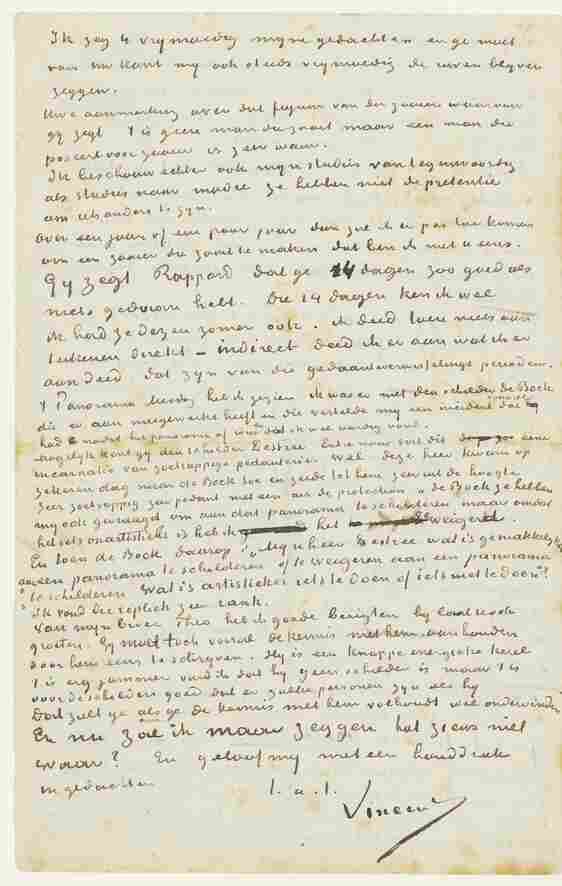 Ik zeg U vrijmoedig mijne gedachten en ge moet
van Uw kant mij ook steeds vrijmoedig de uwen blijven
zeggen.
Uwe aanmerking over dat figuur van den zaaier waarvan
gij zegt 't is geen man die zaait maar een man die
poseert voor zaaier is zeer waar.
Ik beschouw echter ook mijn studies van tegenwoordig
als studies naar model ze hebben niet de pretentie
om iets anders te zijn.
Over een jaar of een paar jaar dan zal ik er pas toe komen
om een zaaier die zaait te maken dat ben ik met U eens.
Gij zegt Rappard dat ge 14 dagen zoo goed als
niets gedaan hebt. Die 14 dagen ken ik wel
ik had ze dezen zomer ook. ik deed toen niets aan
teekenen direkt – indirect deed ik er aan wat ik er
aan deed, dat zijn van die gedaanteverwisselings perioden.
't Panorama Mesdag heb ik gezien ik was er met den schilder de Bock
die er aan meegewerkt heeft en die vertelde mij een incident dat
had nadat het panorama af was dat ik wel aardig vond.
Mogelijk kent gij den schilder Destrée. Entre nous soit dit eene
incarnatie van zoetsappige pedanterie. Wel deze heer kwam op
zekeren dag naar de Bock toe en zeide tot hem zeer uit de hoogte
zeer zoetsappig zeer pedant met een air de protection "de Bock ze hebben
mij ook gevraagd om aan dat panorama te schilderen maar omdat
het iets onartistieks is heb ik het geweigerd.
En toen de Bock daarop: "Mijnheer Destrée wat is gemakkelijker
aan een panorama te schilderen of te weigeren aan een panorama
te schilderen. Wat is artistieker iets te doen of iets niet te doen"?
Ik vond die repliek zeer rank.
Van mijn broer Theo heb ik goede berigten hij laat U ook
groeten. Gij moet toch vooral de kennis met hem aanhouden
door hem eens te schrijven. Hij is een knappe energieke kerel
't is erg jammer vind ik dat hij geen schilder is maar 't is
voor de schilders goed dat er zulke personen zijn als hij
Dat zult ge als ge de kennis met hem volhoudt wel ondervinden
En nu zal ik maar zeggen tot ziens niet
waar? En geloof mij met een handdruk
in gedachten
t. a. t.
Vincent